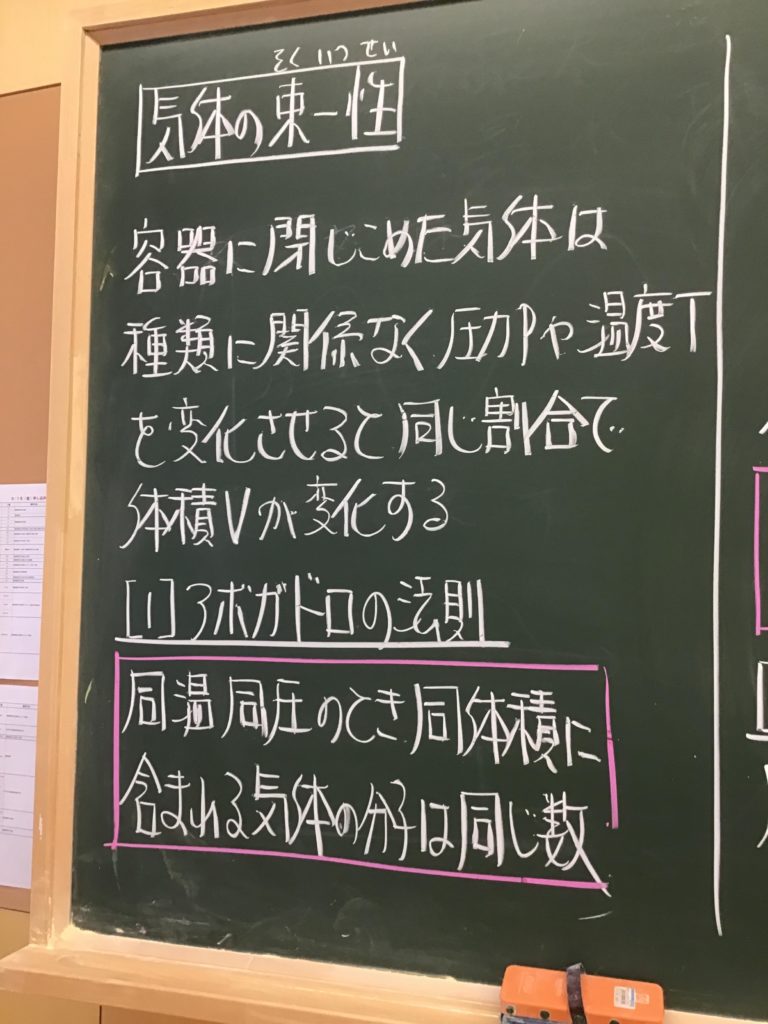 そくいつせい
気体の束一性
容器に閉じこめた気体は
種類に関係なく圧力Pや温度T
を変化させると同じ割合で
体積Vが変化する
[1]アボガドロの法則
同温同圧のとき同体積に
含まれる気体の分子は同じ数